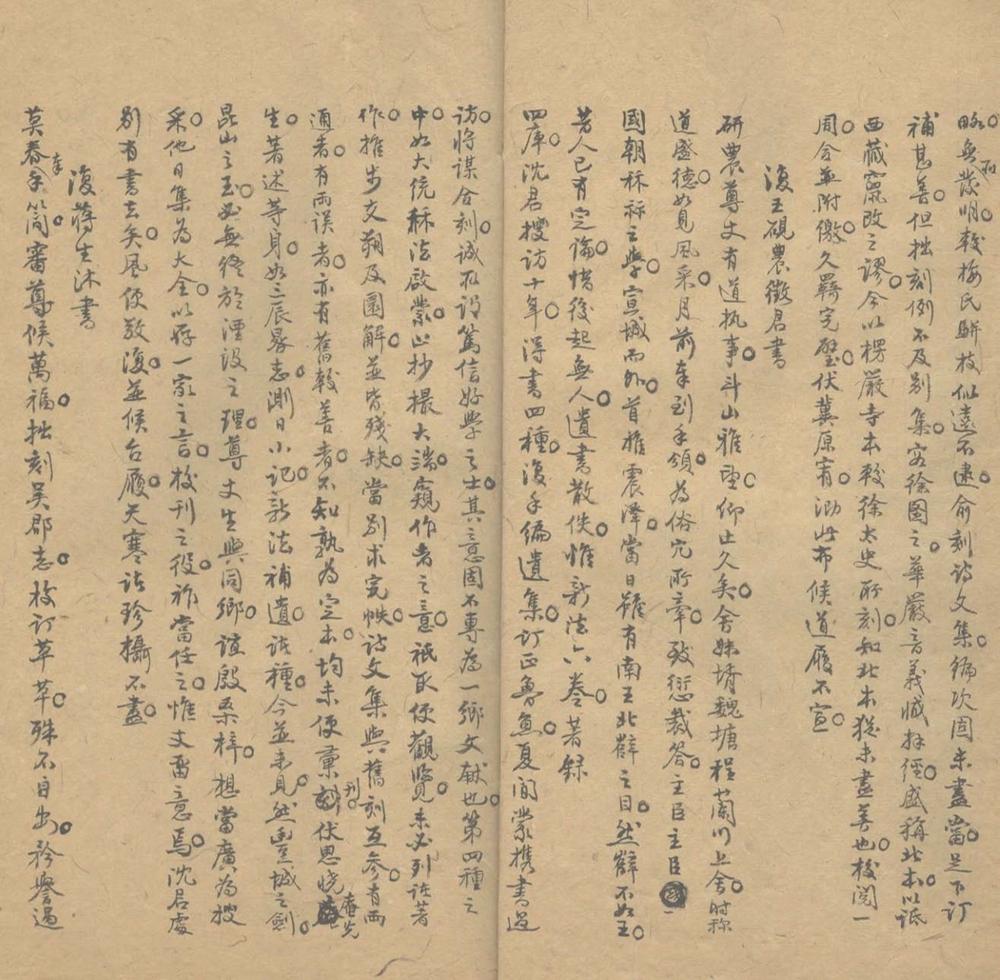 略無發明較梅氏駢枝似遠不逮俞刻詩文集編次固未盡當足下訂
補甚善但拙刻例不及別集容徐圖之華嚴音義臧拜經盛稱北本以詆
西藏竄改之謬今以楞嚴寺本較徐太史所刻知北本猶未盡善也校閱一
周合並附繳久羈完璧伏冀原宥泐此布候道履不宣
復王硯農徵君書
研農尊丈有道執事斗山雅望仰止久矣舍妹壻魏塘程蘭川上舍時稱
道盛德如見風采月前奉到手領為俗冗所牽致愆裁答主臣主臣
國朝秝祘之學宣城而外首推震澤當日雖有南王北薛之目然薛不如王
芳人已有定論惜後起無人遺書散佚惟新法六卷著錄
四庫沈君搜訪十年得書四種復手編遺集訂正魯魚夏間蒙攜書過
訪將謀合刻誠所謂篤信好學之士其意固不專為一鄉文獻也第四種之
中如大統秝法啟蒙止抄撮大端窺作者之意祇取便觀覽未必列諸著
作推步交朔及圜解並皆殘缺當別求完帙詩文集與舊刻互參有兩
通者有兩誤者亦有舊較善者不知孰為定本均未便彙刊伏思曉庵先
生著述等身如三辰晷志測日小記新法補遺諸種今並未見然豐城之劍
昆山之玉必無終於湮沒之理尊丈生與同鄉誼殷桑梓想當廣為搜
采他日集為大全以存一家之言校刊之役祚當任之惟丈留意焉沈君處
別有書去矣風便敬復並候台履天寒諸珍攝不盡
復蔣生沐書
莫春奉手簡審尊候萬福拙刻吳郡志校訂草草殊不自安矜譽過